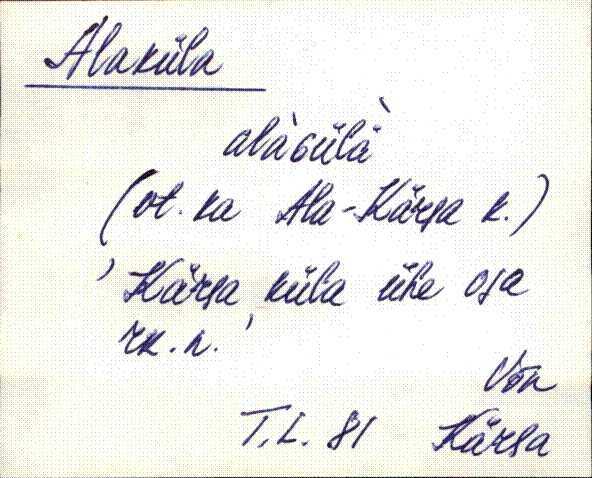 Alaküla
alàɢülä̀
(vt. ka Ala-Kärsa k.)
'Kärsa küla ühe osa
rk. n.'
Võn
T.L. 81 Kärsa